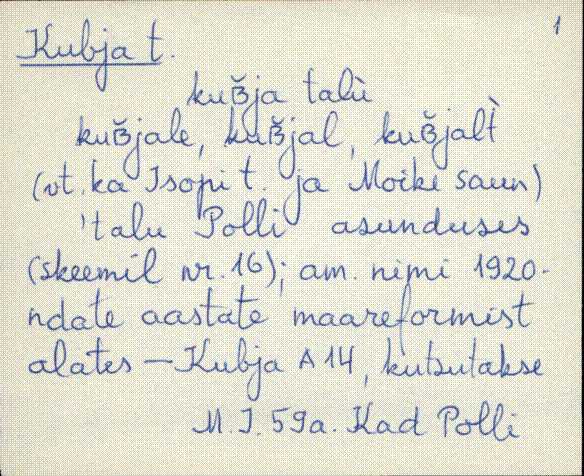 1
Kubja t.
kuʙ̆ja talù
kuʙ̆jale, kuʙ̆jal, kuʙ̆jalt̀
(vt. ka Isopi t. ja Moike saun)
'talu Polli asunduses
(skeemil nr. 16); am. nimi 1920-
ndate aastate maareformist
alates – Kubja A 14, kutsutakse
M. J. 59a. Kad Polli